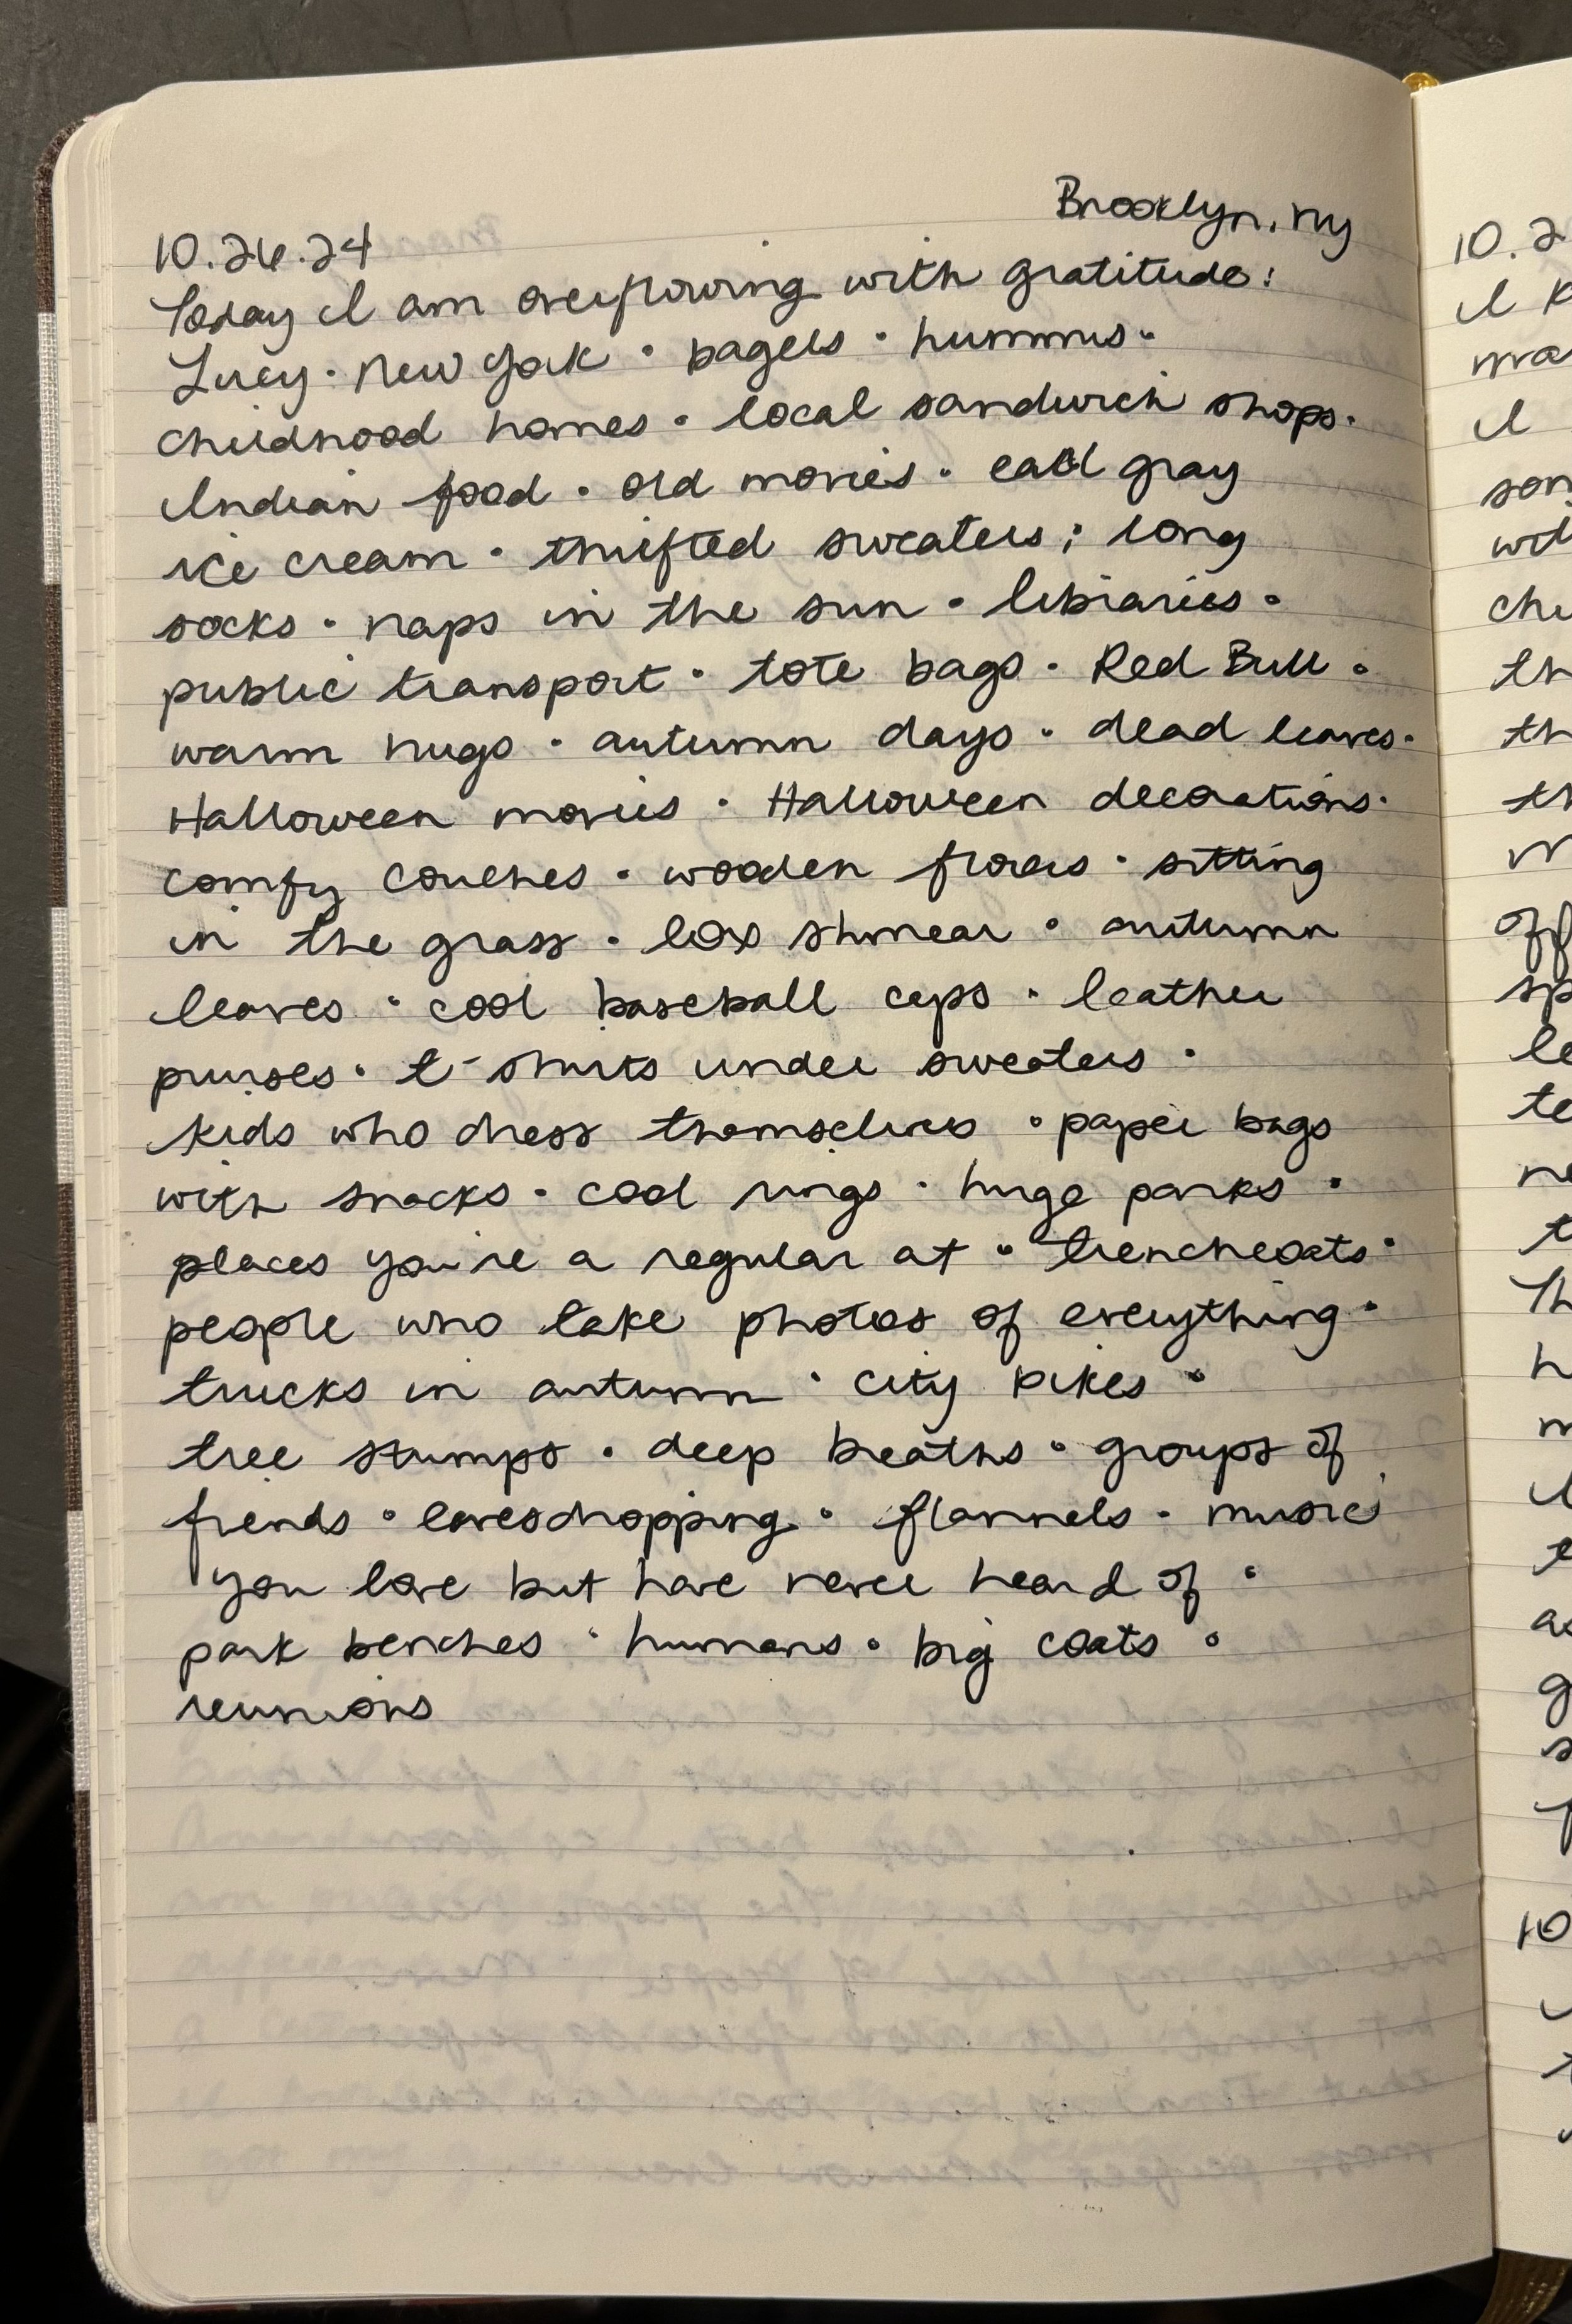 Brooklyn, ny
10.26.24
Today I am overflowing with gratitude:
Lucy · New York · bagels · hummus ·
childhood homes · local sandwich shops ·
Indian food · old movies · earl gray
ice cream · thrifted sweaters ; long
socks · naps in the sun · libraries ·
public transport · tote bags · Red Bull ·
warm hugs · autumn days · dead leaves ·
Halloween movies · Halloween decorations ·
comfy couches · wooden floors · sitting
in the grass · lox shmear · autumn
leaves · cool baseball caps · leather
purses · t-shirts under sweaters ·
kids who dress themselves · paper bags
with snacks · cool rings · huge parks ·
places you're a regular at · trenchcoats ·
people who take photos of everything ·
trucks in autumn · city bikes ·
tree stumps · deep breaths · groups of
friends · eavesdropping · flannels · music
you love but have never heard of ·
park benches · humans · big coats ·
reunions